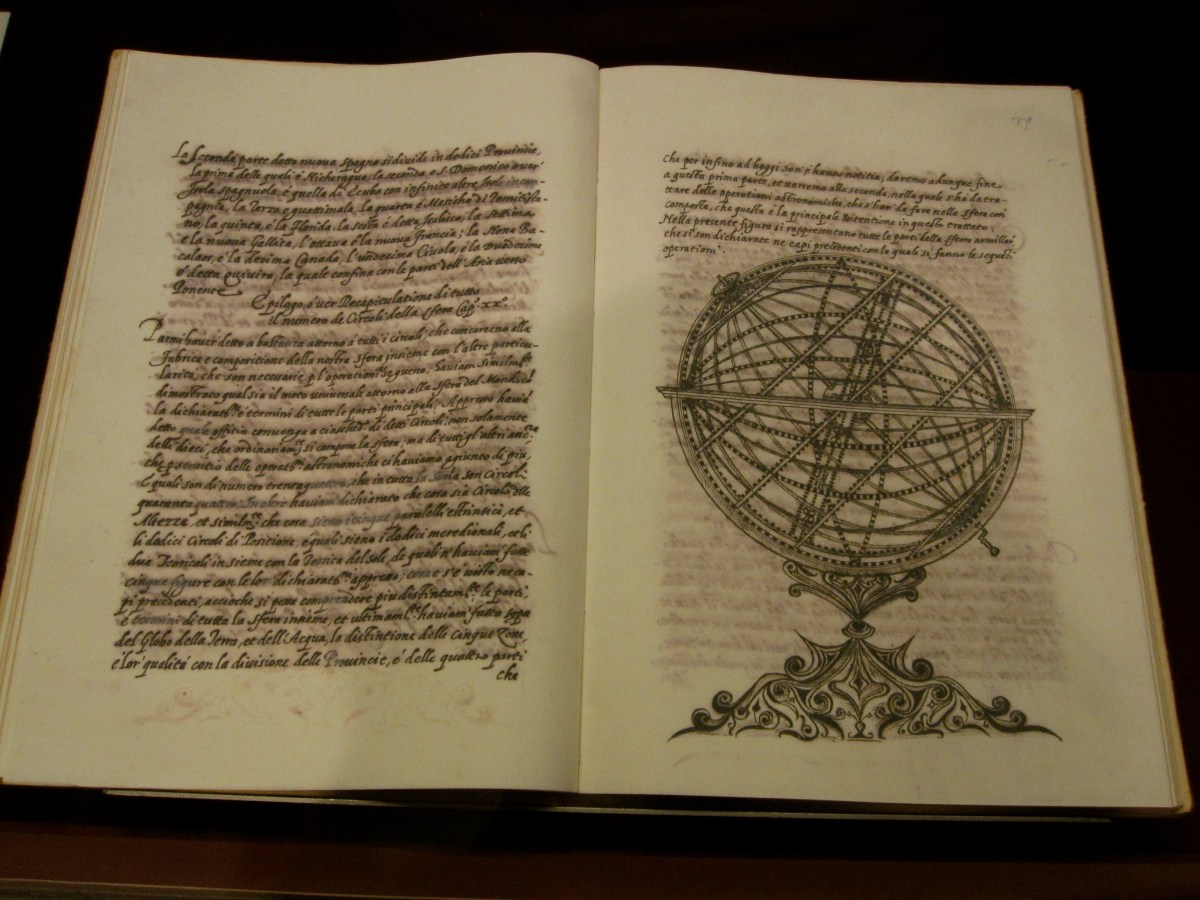 La Seconda parte detta nuova Spagna si divide in dodici Provincie,
la prima delle quali è Nicheragua, la seconda e S. Domenico over'
Isola Spagnuola, è quella di Cuba con infinite altre Isole in com-
pagnia, la Terza e quattimala, la quarta è Messicha di Temistita-
no, la quinta e la Florida, la sesta è detta Jucatica, la settima
e la nuova Gallitia, l'ottava e la nuova Francia; la Nona Ba-
calaos, e la decima Canada, l'undesima Civola, e la Duodecima
è detta Quivira, la quale confina con le parti dell'Asia verso
Ponente
Epilogo, ò ver Decapitulatione di tutto
il numero de Circoli della Sfera Cap.º xxº.
Parmi haver detto a bastanza attorno a tutti i circoli, che concorreno alla
fabrica e compositione della nostra sfera insieme con l'altre particu-
larità, che son necessarie p l'operationi, Haviam
dimostrato qual sia il moto universale attorno alla sfera del Mondo,
la dichiarat.ne e termini di tutte le parti principali; Appresso haviã
detto quale offitio convenga a ciasched.º di detti Circoli; non solamente
delli dieci, che ordinariam.te si compone la sfera, ma di tutti gl'altri anc.ra
che p servitio delle operat.ni astronomiche ci haviamo agiunto di piu,
i quali son di numero trentaquattro, che in tutta la son Circoli
quaranta quattro. In oltre haviam dichiarato che cosa sia Circolo delle
Altezze, et similm.te che cosa sieno i cinque paralelli estrinsici, et
li dodici Circoli di Positione, e quali sieno i dodici meredionali, et li
dua Teoricali in sieme con la Teorica del Sole, de quali n'haviam fatte
cinque figure con le lor dichiarat.ni appresso; come s'è visto ne ca-
pi precedenti, accioche si possa comprendere piu distintam.te le parti,
e termini di tutta la sfera insieme, et ultimam.te haviam fatto
del Globo della Terra, et dell'Acqua, la distintione delle cinque Zone,
e lor' qualità con la divisione delle Provincie, e delle quattro parti
che
Che per infino ad hoggi son' è havuo notitia, daremo adunque fine
a questa prima parte, et verremo alla seconda, nella quale si ha da tra-
ttare delle operationi astronomiche, che s'han' da fare nella sfera cosi
composta, che questa è la principale intentione in questo trattato,
Nella presente figura si rappresentano tutte le parti della sfera armillar'
che si son dichiarate ne capi precedenti con la quale si fanno le sequeti
operationi.